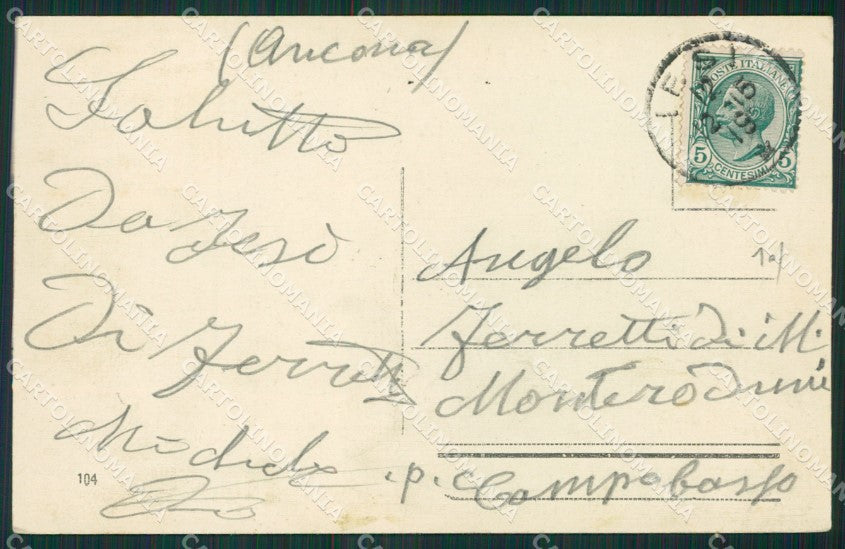 (Ancona)
Salutto
Da Jesi
Di Ferretti
104
POSTE ITALIANE
5 CENTESIMI 5
Angelo
Ferretti di M.
Monteroduni
p. c. Campobasso
CARTOLINOMANIA